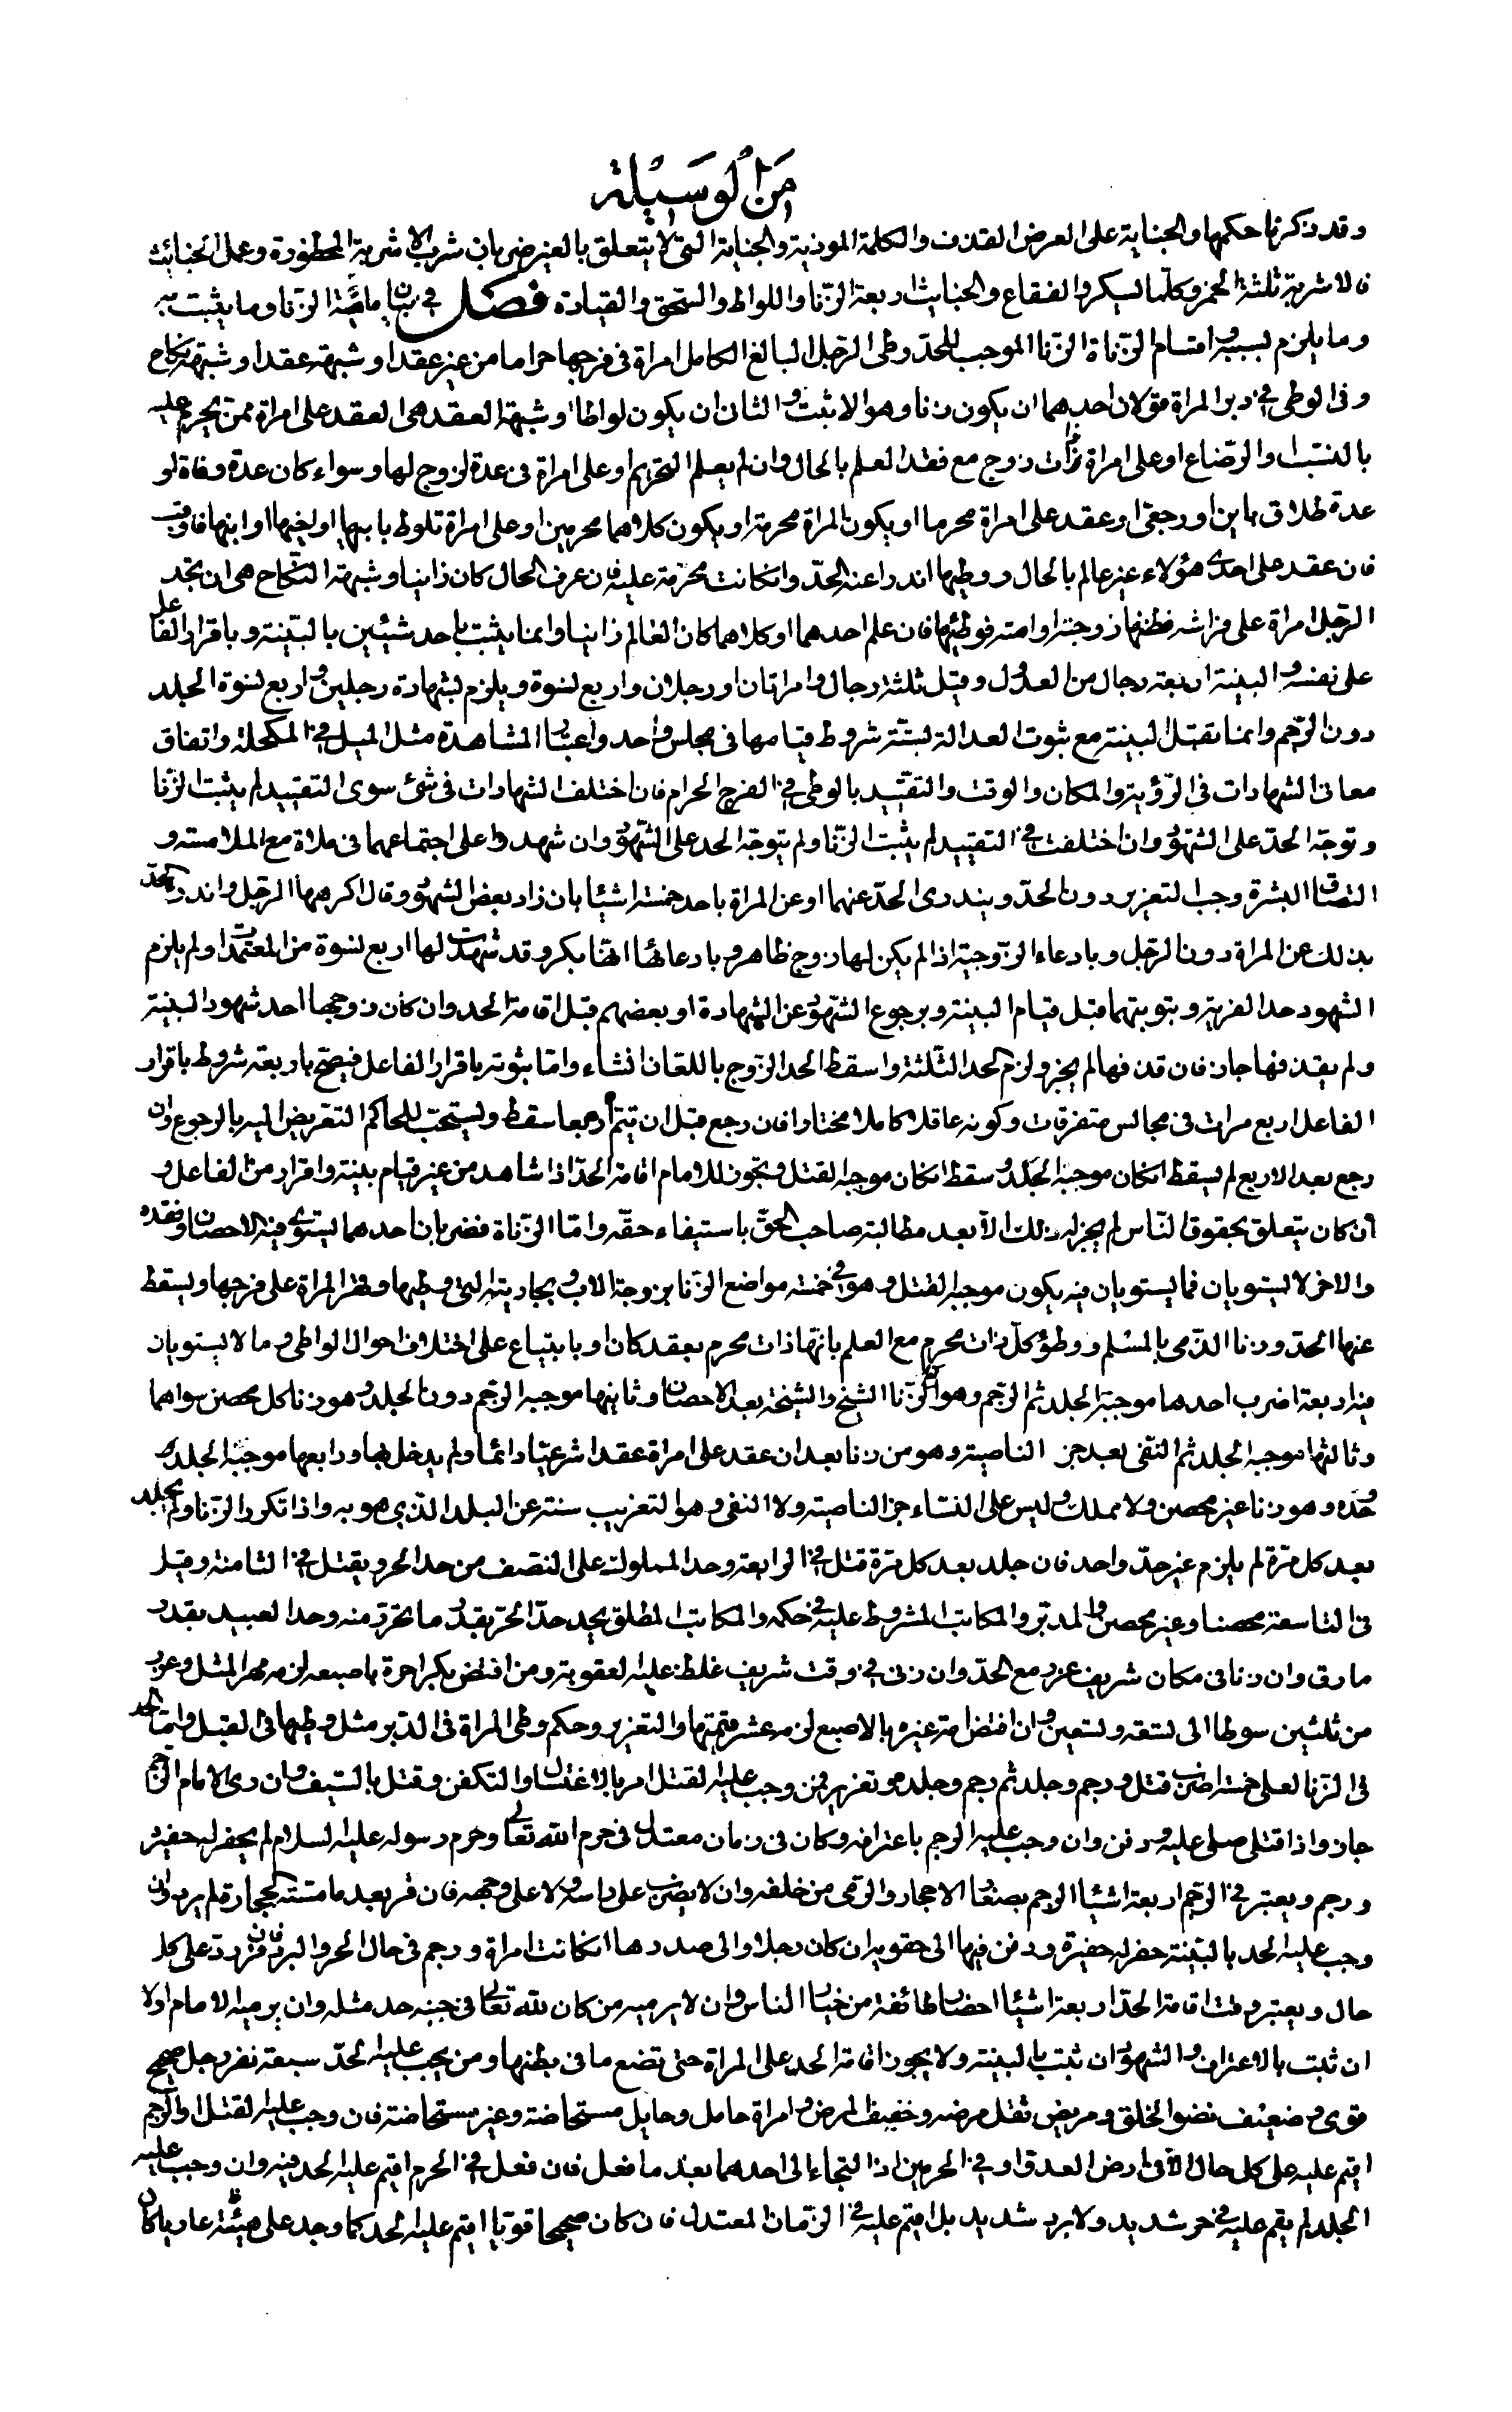 من الوسيلة
وقد ذكرنا حكمها والجناية على العرض القذف والكلمة الموذية والجناية التي لا يتعلق بالغير ضربان شرب الاشربة المحظورة وعمل الخبائث
فالاشربة ثلثة الخمر وكلما يسكر والفقاع والخبايث اربعة الزنا واللواط والسحق والقيادة فصل في بيان ماهية الزنا وما يثبت به
وما يلزم بسببه واقسام الزناة الزنا الموجب للحد وطى الرجل البالغ الكامل امراة في فرجها حراما من غير عقد او شبهة عقد او شبهة نكاح
وفي الوطى في دبر المراة قولان احدهما ان يكون زنا وهو الاثبت والثاني ان يكون لواطا وشبهة العقد هي العقد على امراة ممن يحرم عليه
بالنسب او الرضاع او على امراة ذات زوج مع فقد العلم بالحال وان لم يعلم التحريم او على امراة في عدة لزوج لها وسواء كان عدة وفاة او
عدة طلاق باين او رجعي او عقد على امراة محرما او يكون المراة محرمة او يكون كلاهما محرمين او على امراة تلوط بابيها او اخيها او ابنها فاوقب
فان عقد على احدى هؤلاء غير عالم بالحال ووطيها اندرا عنه الحد وان كانت محرمة عليه فان عرف الحال كان زانيا وشبهة النكاح هي ان يجد
الرجل امراة على فراشه فظنها زوجته او امته فوطئها فان علم احدهما او كلاهما كان العالم زانيا وانما يثبت باحد شيئين بالبينة وباقرار الفاعل
على نفسه والبينة اربعة رجال من العدول وقيل ثلثة رجال وامراتان او رجلان واربع نسوة ويلزم بشهادة رجلين واربع نسوة الجلد
دون الرجم وانما تقبل البينة مع ثبوت العدالة بستة شروط قيامها في مجلس واحد واعتبار المشاهدة مثل الميل في المكحلة واتفاق
معاني الشهادات في الرؤية والمكان والوقت والتقييد بالوطى في الفرج الحرام فان اختلف الشهادات في شئ سوى التقييد لم يثبت الزنا
وتوجه الحد على الشهود وان اختلفت في التقييد لم يثبت الزنا ولم يتوجه الحد على الشهود وان شهدوا على اجتماعهما في ملاة مع الملامسة و
التصاق البشرة وجب التعزير دون الحد ويندرى الحد عنهما او عن المراة باحد خمسة اشياء بان زاد بعض الشهود وقال اكرهها الرجل واندرء الحد
بذلك عن المراة دون الرجل وبادعاء الزوجية اذا لم يكن لها زوج ظاهر وبادعائها انها بكر وقد شهدت لها اربع نسوة من المعتمدات ولم يلزم
الشهود حد الفرية وبتوبتهما قبل قيام البينة وبرجوع الشهود عن الشهادة او بعضهم قبل اقامة الحد وان كان زوجها احد شهود البينة
ولم يقذفها جاز فان قذفها لم يجز ولزم الحد الثلثة واسقط الحد الزوج باللعان ان شاء واما ثبوته باقرار الفاعل فيصح باربعة شروط باقرار
الفاعل اربع مرات في مجالس متفرقات وكونه عاقلا كاملا مختارا فان رجع قبل ان يتم اربعا سقط ويستحب للحاكم التعريض اليه بالرجوع وان
رجع بعد الاربع لم يسقط ان كان موجبه الجلد وسقط ان كان موجبه القتل ويجوز للامام اقامة الحد اذا شاهد من غير قيام بينة واقرار من الفاعل و
ان كان يتعلق بحقوق الناس لم يجز له ذلك الا بعد مطالبة صاحب الحق باستيفاء حقه واما الزناة فضربان احدهما يستوى فيه الاحصان وفقده
والاخر لا يستويان فما يستويان فيه يكون موجبه القتل وهو في خمسة مواضع الزنا بزوجة الاب وبجاريته التي وطيها وقهر المراة على فرجها ويسقط
عنها الحد وزنا الذمي بالمسلم ووطؤ كل ذات محرم مع العلم بانها ذات محرم بعقد كان او بابتياع على اختلاف احوال الواطى وما لا يستويان
فيه اربعة اضرب احدها موجبه الجلد ثم الرجم وهو الزنا الشيخ والشيخة بعد الاحصان وثانيها موجبه الرجم دون الجلد وهو زنا كل محصن سواهما
وثالثها موجبه الجلد ثم النفى بعد جز الناصية وهو من زنا بعد ان عقد على امراة عقدا شرعيا دائما ولم يدخل بها ورابعها موجبه الجلد
وحده وهو زنا غير محصن ولا مملك وليس على النساء جز الناصية ولا النفى وهو التغريب سنة عن البلد الذي هو به واذا تكرر الزنا ولم يجلد
بعد كل مرة لم يلزم غير حد واحد فان جلد بعد كل مرة قتل في الرابعة وحد المملوك على النصف من حد الحر ويقتل في الثامنة وقيل
في التاسعة محصنا وغير محصن والمدبر والمكاتب المشروط عليه في حكمه والمكاتب المطلق يحد حد الحر بقدر ما تحرر منه وحد العبيد بقدر
مارق وان زنا في مكان شريف عزر مع الحد وان زنى في وقت شريف غلظ عليه العقوبة ومن افتض بكرا حرة باصبعه لزمه مهر المثل وعزر
من ثلثين سوطا الى تسعة وتسعين وان افتض امة غيره بالاصبع لزمه عشر قيمتها والتعزير وحكم وطى المراة في الدبر مثل وطيها في القبل واما الحد
في الزنا لعلى خمسة اضرب قتل ورجم وجلد ثم رجم وجلد وتعزير فمن وجب عليه القتل امر بالاغتسال والتكفن وقتل بالسيف وان رى الامام الرجم
جاز واذا قتل صلى عليه ودفن وان وجب عليه الرجم باعترافه وكان في زمان معتدل في حرم الله تعالى وحرم رسوله عليه السلام لم يحفر له حفيرة
ورجم ويعتبر في الرجم اربعة اشياء الرجم بصغار الاحجار والرمى من خلفه وان لا يضرب على راسه ولا على وجهه فان فر بعد ما مسته الحجارة لم يرد وان
وجب عليه الحد بالبينة حفر له حفيرة ودفن فيها الى حقويه ان كان رجلا والى صدرها ان كانت امراة ورجم في حال الحر والبرد فان فر رد على كل
حال ويعتبر وقت اقامة الحد اربعة اشياء احضار طائفة من خيار الناس وان لا يرميه من كان لله تعالى في جنبه حد مثله وان يرميه الامام اولا
ان ثبت بالاعتراف والشهود ان ثبت بالبينة ولا يجوز اقامة الحد على المراة حتى تضع ما في بطنها ومن يجب عليه الحد سبعة نفر رجل صحيح
قوى وضعيف نضو الخلق ومريض ثقل مرضه وخفيف المرض وامراة حامل وحايل مستحاضة وغير مستحاضة فان وجب عليه القتل او الرجم
اقيم عليه على كل حال الا في ارض العدو او في الحرمين اذا التجاء الى احدهما بعد ما فعل فان فعل في الحرم اقيم عليه الحد فيه وان وجب عليه
الجلد لم يقم عليه في حر شديد ولا برد شديد بل اقيم عليه في الزمان المعتدل فان كان صحيحا قويا اقيم عليه الحد كما وجد على هيئته عاريا كان